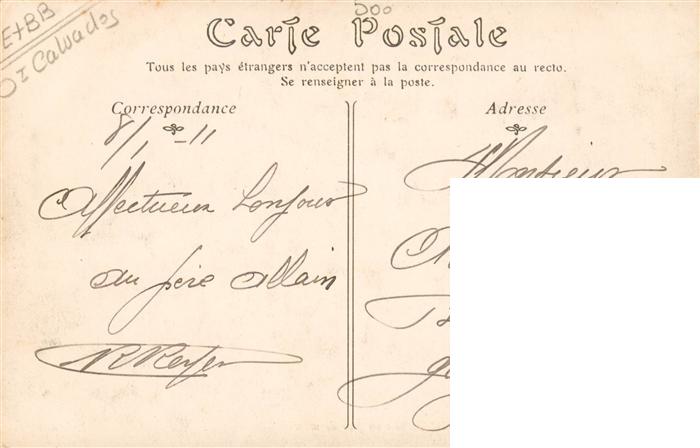 E+BB
01 Calvados
500
Carte Postale
Tous les pays étrangers n'acceptent pas la correspondance au recto.
Se renseigner à la poste.
Correspondance
8/1-11
Affectueux bonjour
au père Allain
Adresse
Monsieur